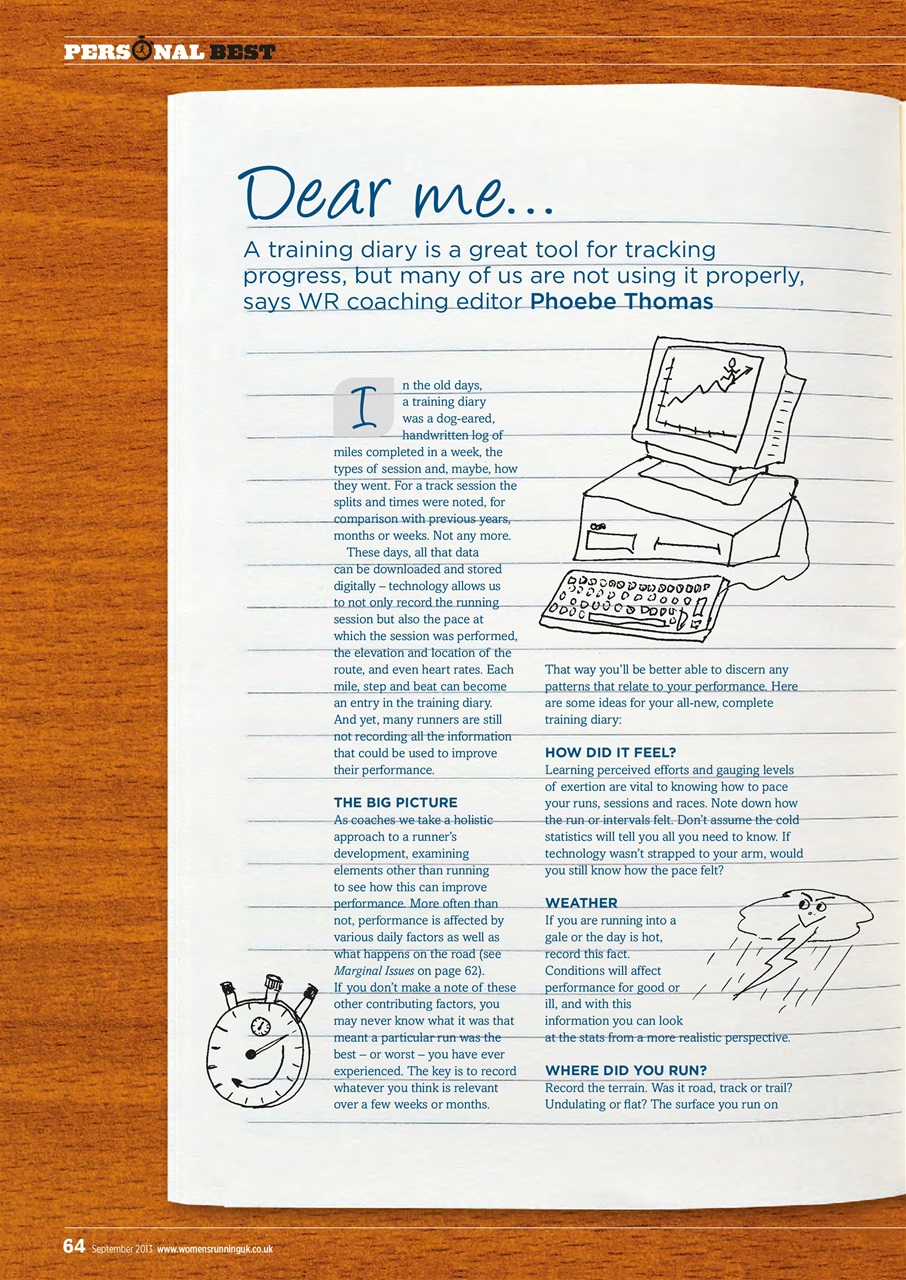 PERSONAL BEST
Dear me...
A training diary is a great tool for tracking
progress, but many of us are not using it properly,
says WR coaching editor Phoebe Thomas
In the old days,
a training diary
was a dog-eared,
handwritten log of
miles completed in a week, the
types of session and, maybe, how
they went. For a track session the
splits and times were noted, for
comparison with previous years,
months or weeks. Not any more.
These days, all that data
can be downloaded and stored
digitally – technology allows us
to not only record the running
session but also the pace at
which the session was performed,
the elevation and location of the
route, and even heart rates. Each
mile, step and beat can become
an entry in the training diary.
And yet, many runners are still
not recording all the information
that could be used to improve
their performance.
THE BIG PICTURE
As coaches we take a holistic
approach to a runner's
development, examining
elements other than running
to see how this can improve
performance. More often than
not, performance is affected by
various daily factors as well as
what happens on the road (see
Marginal Issues on page 62).
If you don't make a note of these
other contributing factors, you
may never know what it was that
meant a particular run was the
best – or worst – you have ever
experienced. The key is to record
whatever you think is relevant
over a few weeks or months.
That way you'll be better able to discern any
patterns that relate to your performance. Here
are some ideas for your all-new, complete
training diary:
HOW DID IT FEEL?
Learning perceived efforts and gauging levels
of exertion are vital to knowing how to pace
your runs, sessions and races. Note down how
the run or intervals felt. Don't assume the cold
statistics will tell you all you need to know. If
technology wasn't strapped to your arm, would
you still know how the pace felt?
WEATHER
If you are running into a
gale or the day is hot,
record this fact.
Conditions will affect
performance for good or
ill, and with this
information you can look
at the stats from a more realistic perspective.
WHERE DID YOU RUN?
Record the terrain. Was it road, track or trail?
Undulating or flat? The surface you run on
64 September 2013 www.womensrunninguk.co.uk